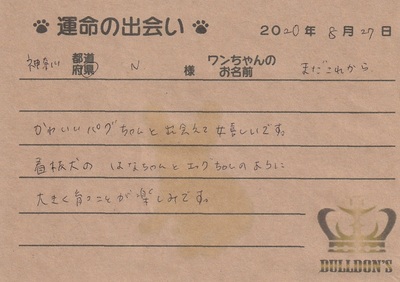 運命の出会い 2020年8月27日
神奈川 都道府県 N 様 ワンちゃんのお名前 まだこれから
かわいいパグちゃんと出会えて嬉しいです。
看板犬の はなちゃんとエッグちゃんのように
大きく育つことが楽しみです。
BULLDON'S